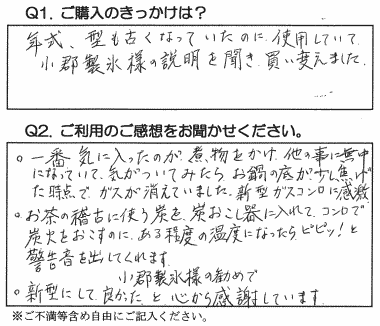 Q1. ご購入のきっかけは？
年式、型も古くなっていたのに使用していて
小郡製氷様の説明を聞き買い変えました。
Q2. ご利用のご感想をお聞かせください。
○一番気に入ったのが煮物をかけ、他の事に無中
になっていて、気がついてみたらお鍋の底が少し焦げ
た時点でガスが消えていました。新型ガスコンロに感激
○お茶の稽古に使う炭を炭おこし器に入れてコンロで
炭火をおこすのに、ある程度の温度になったらピピッ！と
警告音を出してくれます。
小郡製氷様の勧めで
○新型にして良かったと心から感謝しています。
※ご不満等含め自由にご記入ください。